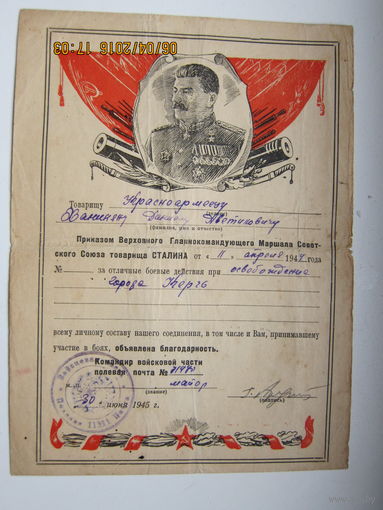 06/04/2016 17:03
Товарищу Красноармейцу
(звание)
(фамилия, имя и отчество)
Приказом Верховного Главнокомандующего Маршала Совет-
ского Союза товарища СТАЛИНА от „ 11 „ апреля 1944 года
№ за отличные боевые действия при освобождение
города Керчь
всему личному составу нашего соединения, в том числе и Вам, принимавшему
участие в боях, объявлена благодарность.
Командир войсковой части
полевая почта №
майор
(звание)
м.п.
(подпись)
„30„ июня 1945 г.